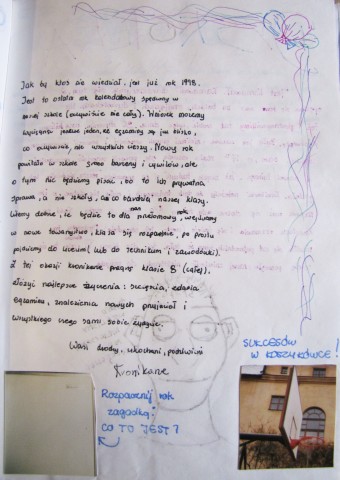 Jak by ktoś nie wiedział, jest już rok 1998.
Jest to ostatni rok kalendarzowy spędzony w
naszej szkole (oczywiście nie cały). Wniosek możemy
wyciągnąć jeszcze jeden, że egzaminy są już blisko,
co oczywiście nie wszystkich cieszy. Nowy rok
powitało w szkole grono
o tym nie będziemy pisać, bo to ich prywatna
sprawa, a nie szkoły, ani co bardziej naszej klasy.
Wiemy dobrze, że będzie to dla nas przełomowy rok, wejdziemy
w nowe towarzystwo, klasa się rozpadnie, po prostu
pójdziemy do liceum (lub do technikum i zawodówki).
Z tej okazji kronikarze pragną klasie 8 (całej)
złożyć najlepsze życzenia: szczęścia, zdania
egzaminu, znalezienia nowych przyjaciół i
wszystkiego czego sami sobie życzycie.
Wasi drodzy, ukochani, podstwieni
Kronikarze
SUKCESÓW
W KOSZYKÓWCE!
Rozpocznij rok
zagadką:
CO TO JEST?